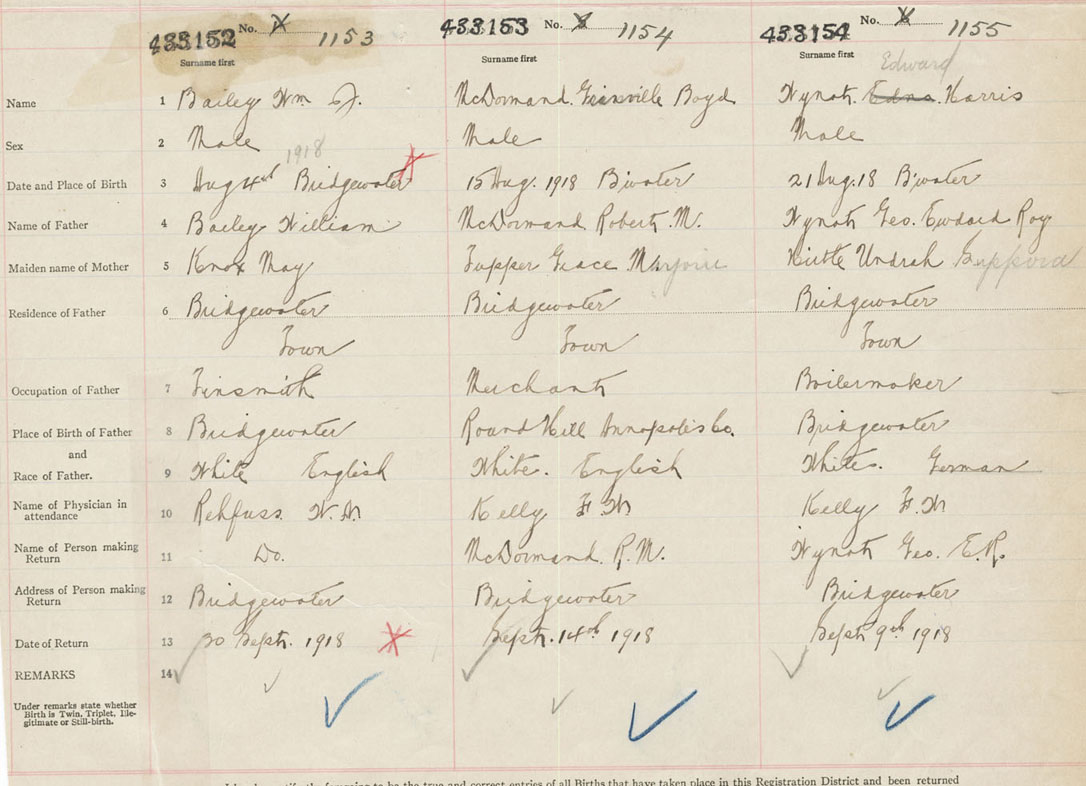 433152 No. 1153
433153 No. 8 1154
433154 No. 1155
Surname first Surname first Surname first
Edward
Name 1 Bailey Wm J. McDormand. Grinville Boyd Wynot. Edna. Harris
Sex 2 Male Male Male
1918
Date and Place of Birth 3 Aug 4th Bridgewater 15 Aug. 1918 B'water 21 Aug. 18 B'water
Name of Father 4 Bailey William McDormand Robert. M. Wynot Geo. Edward Roy
Maiden name of Mother 5 Knox May Tupper Grace Marjorie Undrah
Residence of Father 6 Bridgewater Bridgewater Bridgewater
Town Town Town
Occupation of Father 7 Tinsmith Merchant Boilermaker
Place of Birth of Father 8 Bridgewater Round Hill Annapolis Co. Bridgewater
and
Race of Father. 9 White English White. English White. German
Name of Physician in
attendance 10 Rehfuss. W. N. Kelly F. W Kelly F. W
Name of Person making
Return 11 Do. McDormand. R. M. Wynot Geo. E. R.
Address of Person making
Return 12 Bridgewater Bridgewater Bridgewater
Date of Return 13 30 Septr. 1918 Septr. 14th 1918 Septr 9th 1918
REMARKS 14
Under remarks state whether
Birth is Twin, Triplet, Ille-
gitimate or Still-birth.
to be the true and correct entries of all Births that have taken place in this Registration District and been returned